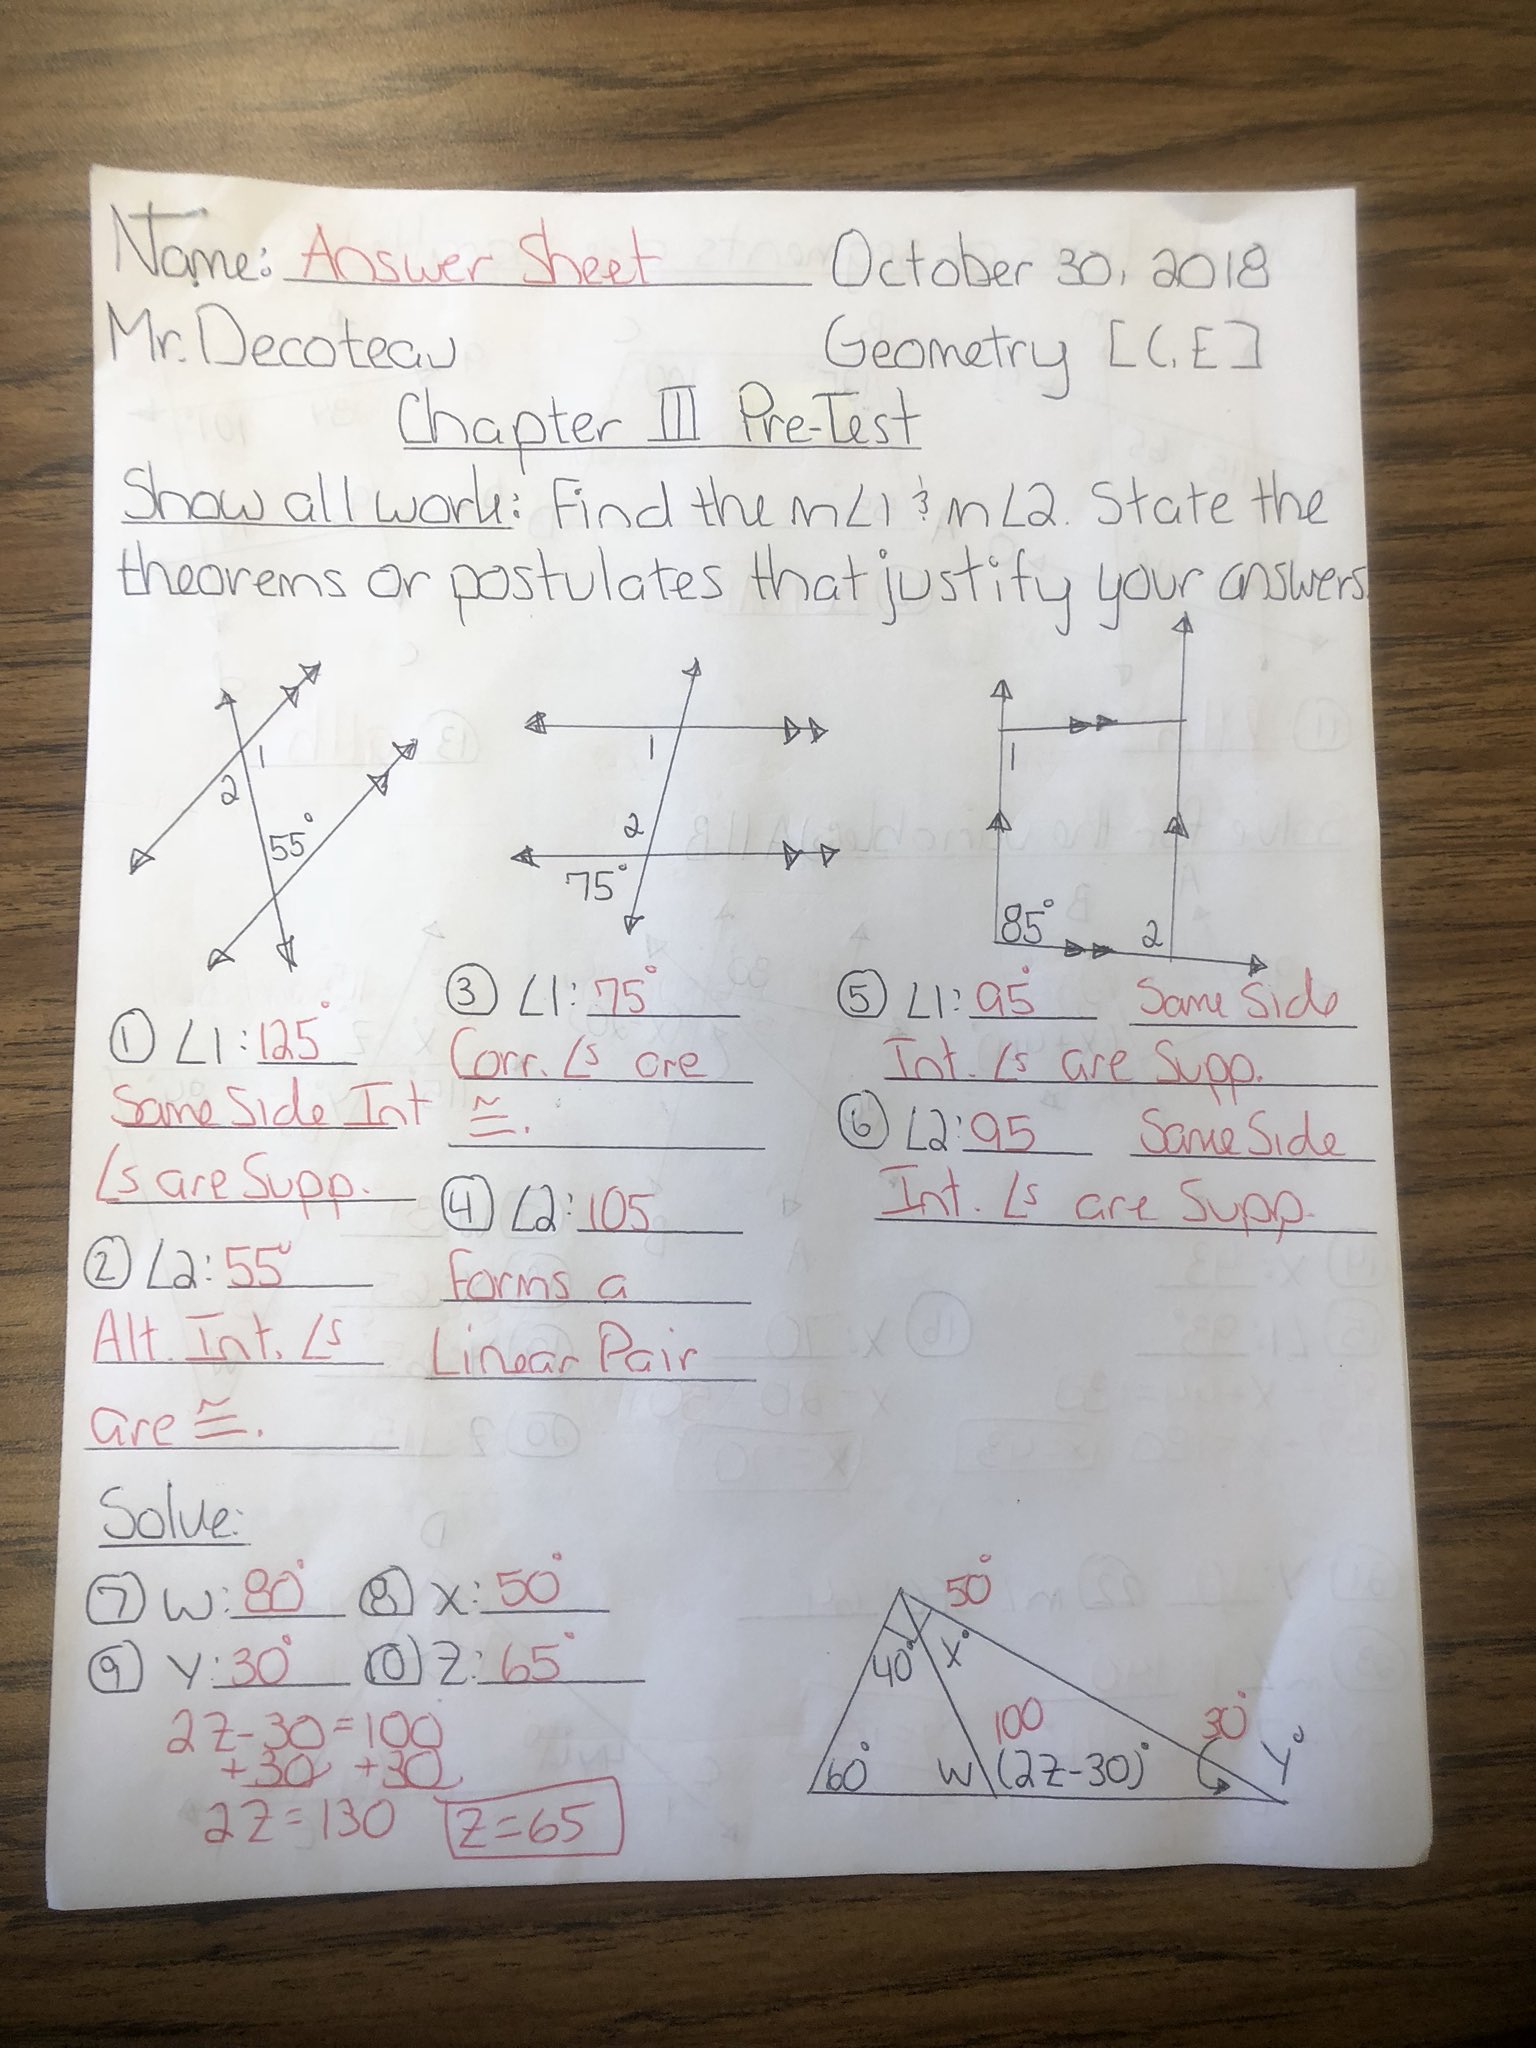 Name: Answer Sheet October 30, 2018
Mr. Decoteau Geometry [C,E]
Chapter III Pre-Test
Show all work: Find the m∠1 & m∠2. State the
theorems or postulates that justify your answers.
1
2
55°
1
2
75°
1
85°
2
① ∠1: 125°
Same Side Int
∠s are Supp.
② ∠2: 55°
Alt. Int. ∠s
are ≅.
③ ∠1: 75°
Corr. ∠s are
≅.
④ ∠2: 105
Forms a
Linear Pair
⑤ ∠1: 95° Same Side
Int. ∠s are Supp.
⑥ ∠2: 95 Same Side
Int. ∠s are Supp.
Solve:
⑦ W: 80° ⑧ X: 50°
⑨ Y: 30° ⑩ Z: 65°
2Z-30=100
+30 +30
2Z=130 Z=65
50°
40° X°
100 30°
60° W (2Z-30)° Y°